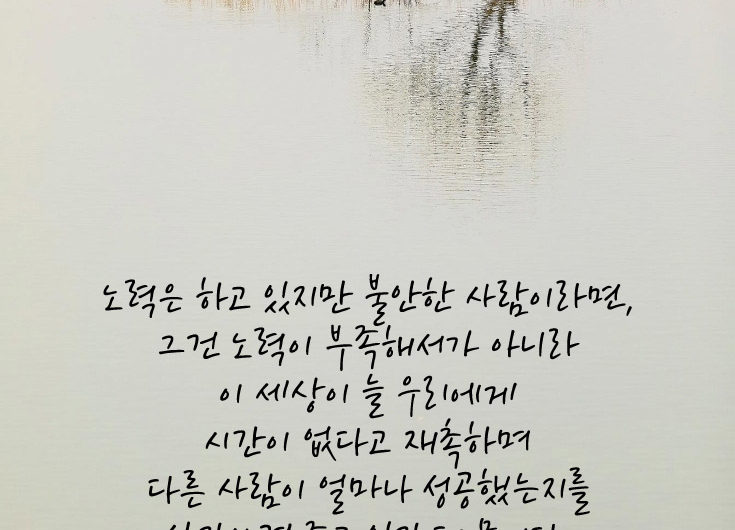 노력은 하고 있지만 불안한 사람이라면,
그건 노력이 부족해서가 아니라
이 세상이 늘 우리에게
시간이 없다고 재촉하며
다른 사람이 얼마나 성공했는지를